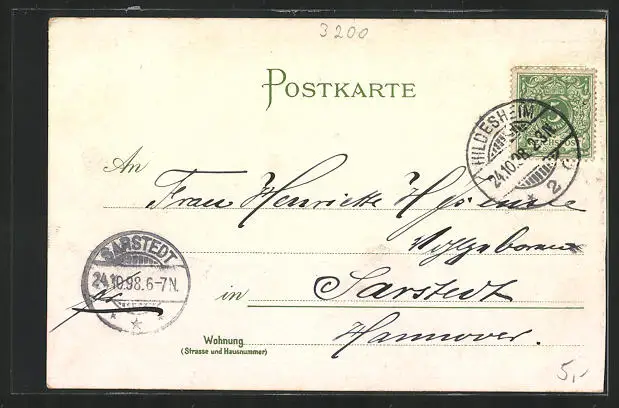 3200
POSTKARTE
5
HILDESHEIM
24.10.98. 2-3N.
2 c
An
Frau Henriette
Wohlgeboren
SARSTEDT
24.10.98.6-7N.
in Sarstedt
Hannover.
Wohnung
(Strasse und Hausnummer)
5,-